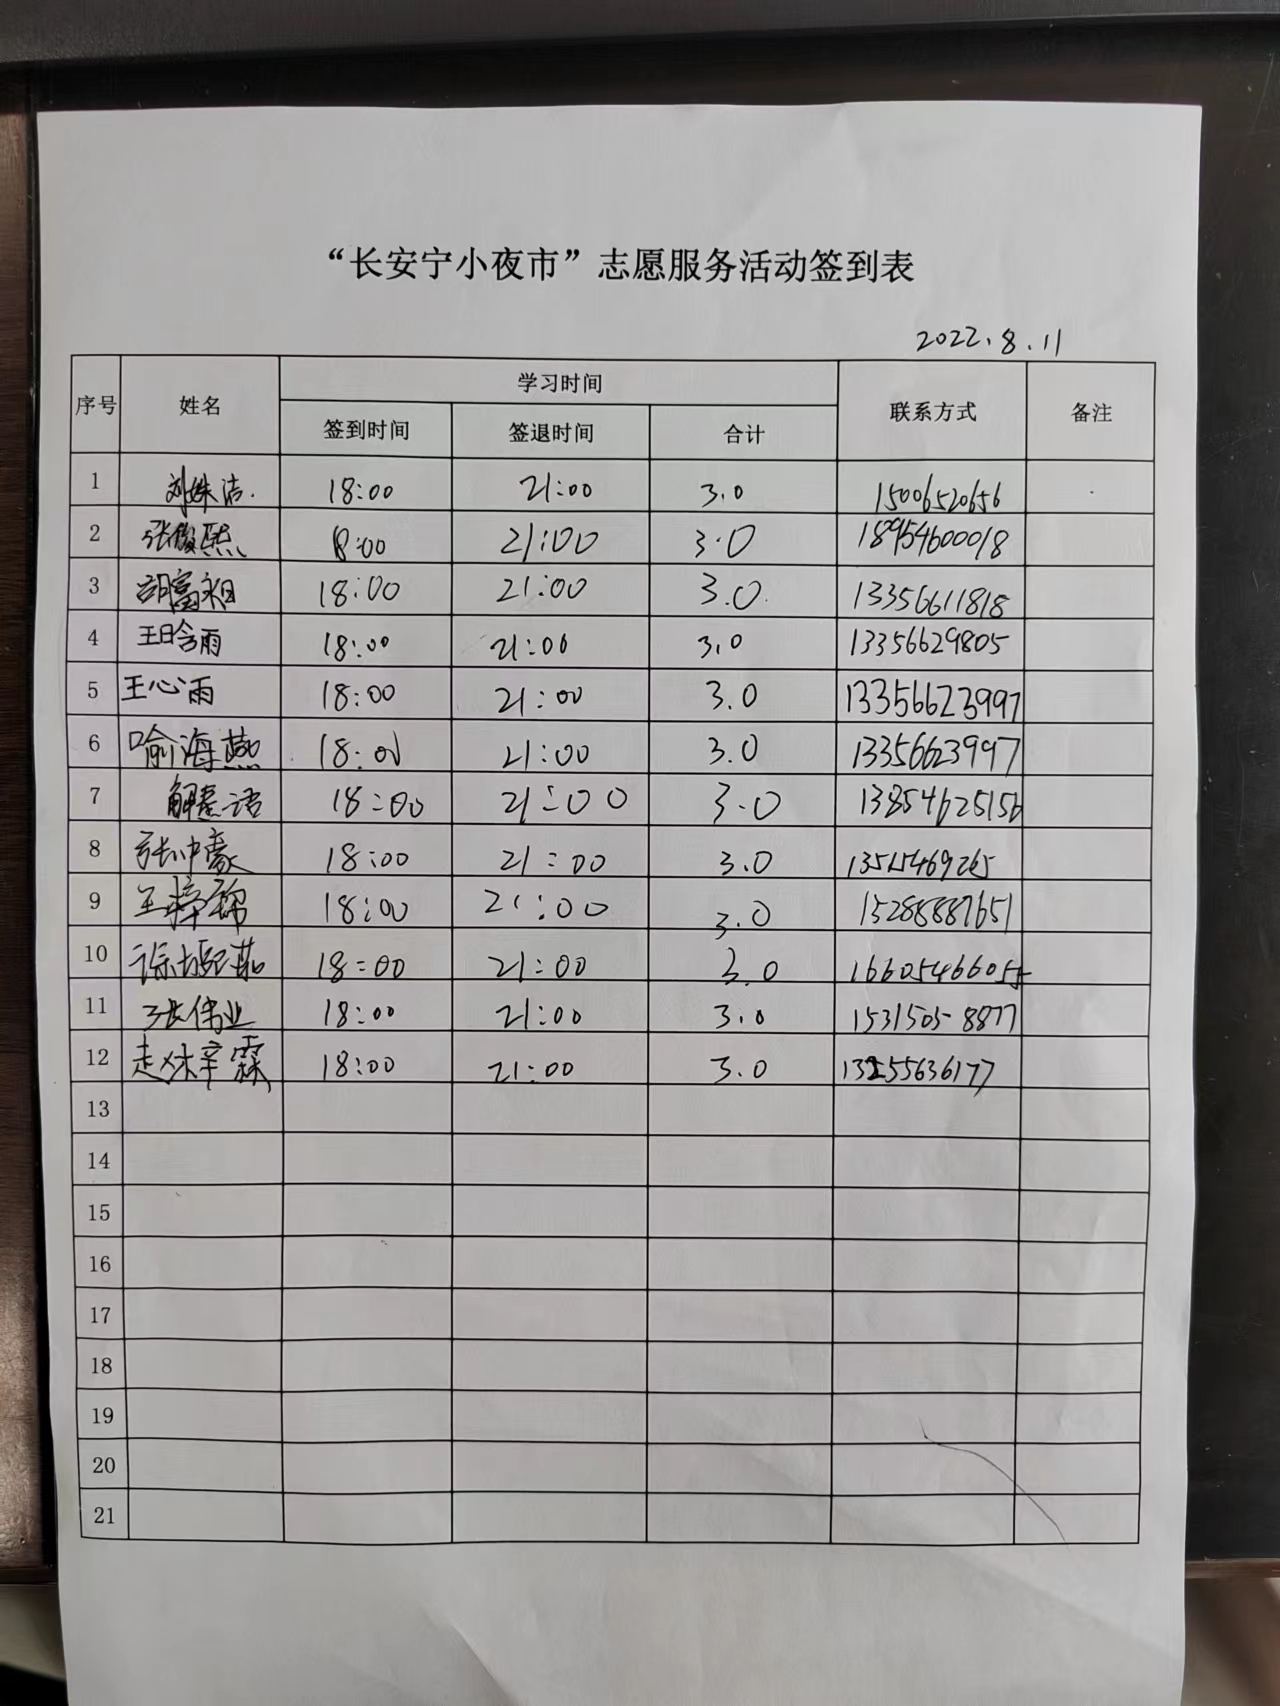 “长安宁小夜市”志愿服务活动签到表
2022.8.11
序号 姓名 学习时间 联系方式 备注
签到时间 签退时间 合计
1 刘姝洁. 18:00 21:00 3.0 15006520656
2 张俊熙 18:00 21:00 3.0 18954600018
3 胡富祖 18:00 21:00 3.0. 13356611818
4 王晗雨 18:00 21:00 3.0 13356629805
5 王心雨 18:00 21:00 3.0 13356623997
6 喻海燕 18:00 21:00 3.0 13356623997
7 解意语 18:00 21:00 3.0 13854625156
8 张冲豪 18:00 21:00 3.0
9 王梓锦 18:00 21:00 3.0 15288887651
10 18:00 21:00 3.0 16605466055
11 张伟业 18:00 21:00 3.0 15315058877
12 18:00 21:00 3.0 13255636177
13
14
15
16
17
18
19
20
21